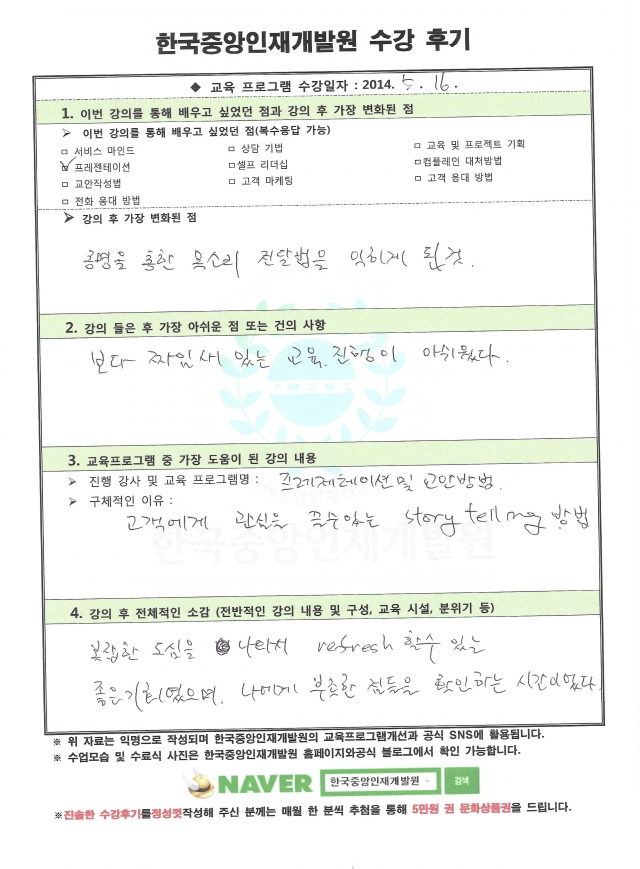 한국중앙인재개발원 수강 후기
◆ 교육 프로그램 수강일자 : 2014. 5. 16.
1. 이번 강의를 통해 배우고 싶었던 점과 강의 후 가장 변화된 점
➢ 이번 강의를 통해 배우고 싶었던 점(복수응답 가능)
□ 서비스 마인드 □ 상담 기법 □ 교육 및 프로젝트 기획
☑ 프레젠테이션 □셀프 리더십 □컴플레인 대처방법
□ 교안작성법 □ 고객 마케팅 □ 고객 응대 방법
□ 전화 응대 방법
➢ 강의 후 가장 변화된 점
공명을 통한 목소리 전달법을 익히게 된것.
2. 강의 들은 후 가장 아쉬운 점 또는 건의 사항
보다 짜임새 있는 교육.진행이 아쉬웠다.
3. 교육프로그램 중 가장 도움이 된 강의 내용
➢ 진행 강사 및 교육 프로그램명 : 프레제테이션 및 교안방법.
➢ 구체적인 이유 :
고객에게 관심을 끌수있는 story telling 방법
한국중앙인재개발원
4. 강의 후 전체적인 소감 (전반적인 강의 내용 및 구성, 교육 시설, 분위기 등)
복잡한 도심을 나와서 refresh 할수 있는
좋은기회였으며. 나에게 부족한 점들을 확인하는 시간이었다.
※ 위 자료는 익명으로 작성되며 한국중앙인재개발원의 교육프로그램개선과 공식 SNS에 활용됩니다.
※ 수업모습 및 수료식 사진은 한국중앙인재개발원 홈페이지와공식 블로그에서 확인 가능합니다.
NAVER 한국중앙인재개발원 검색
※진솔한 수강후기를정성껏작성해 주신 분께는 매월 한 분씩 추첨을 통해 5만원 권 문화상품권을 드립니다.